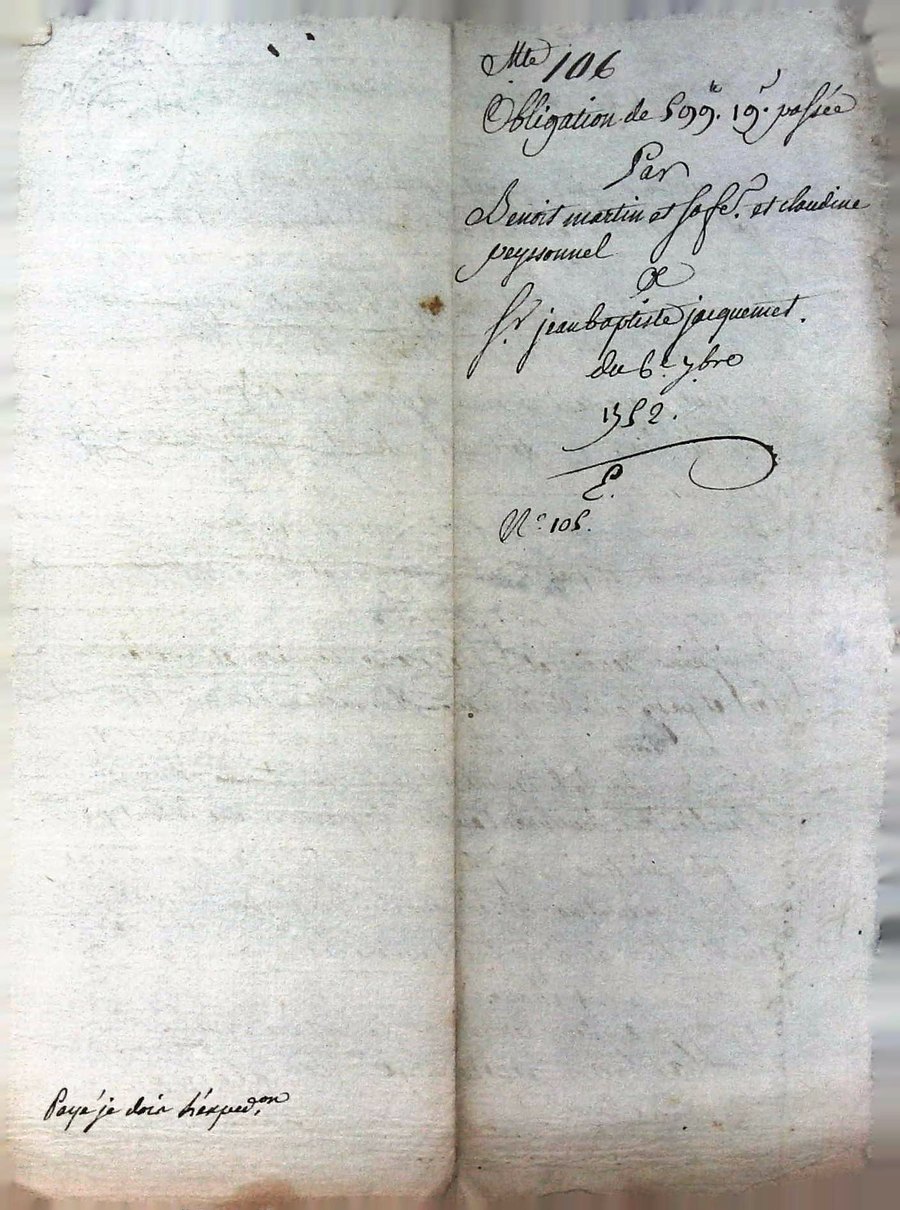 Mte 106
Obligation de 599.# 19.s passée
Par
Benoit martin et sa fe. et claudine
peyssonnel
A
Sr. jean baptiste jacquemet.
du 6e. 7bre
1752.
E.
No. 105.
Payé je dois l'exped.on